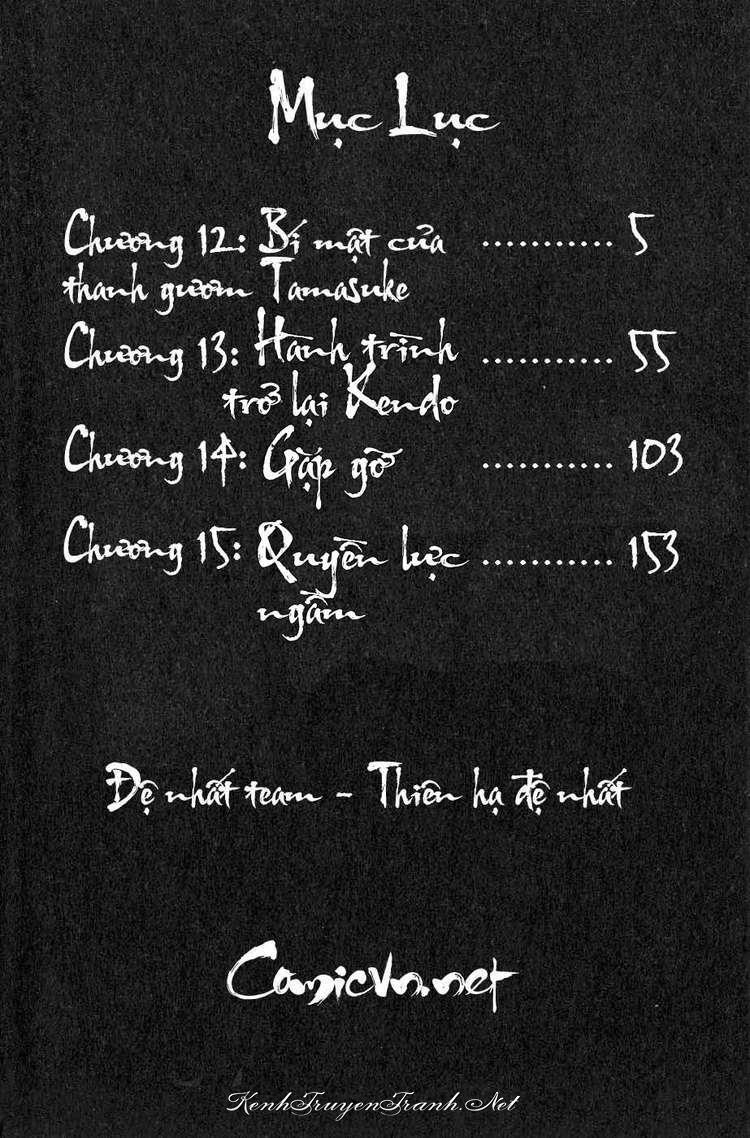 Mục Lục
Chương 12: Bí mật của ........... 5
thanh gươm Tamasuke
Chương 13: Hành trình ........... 55
trở lại Kendo
Chương 14: Gặp gỡ ........... 103
Chương 15: Quyền lực ........... 153
ngầm
Đệ nhất team - Thiên hạ đệ nhất
Comicvn.net
KenhTruyenTranh.Net